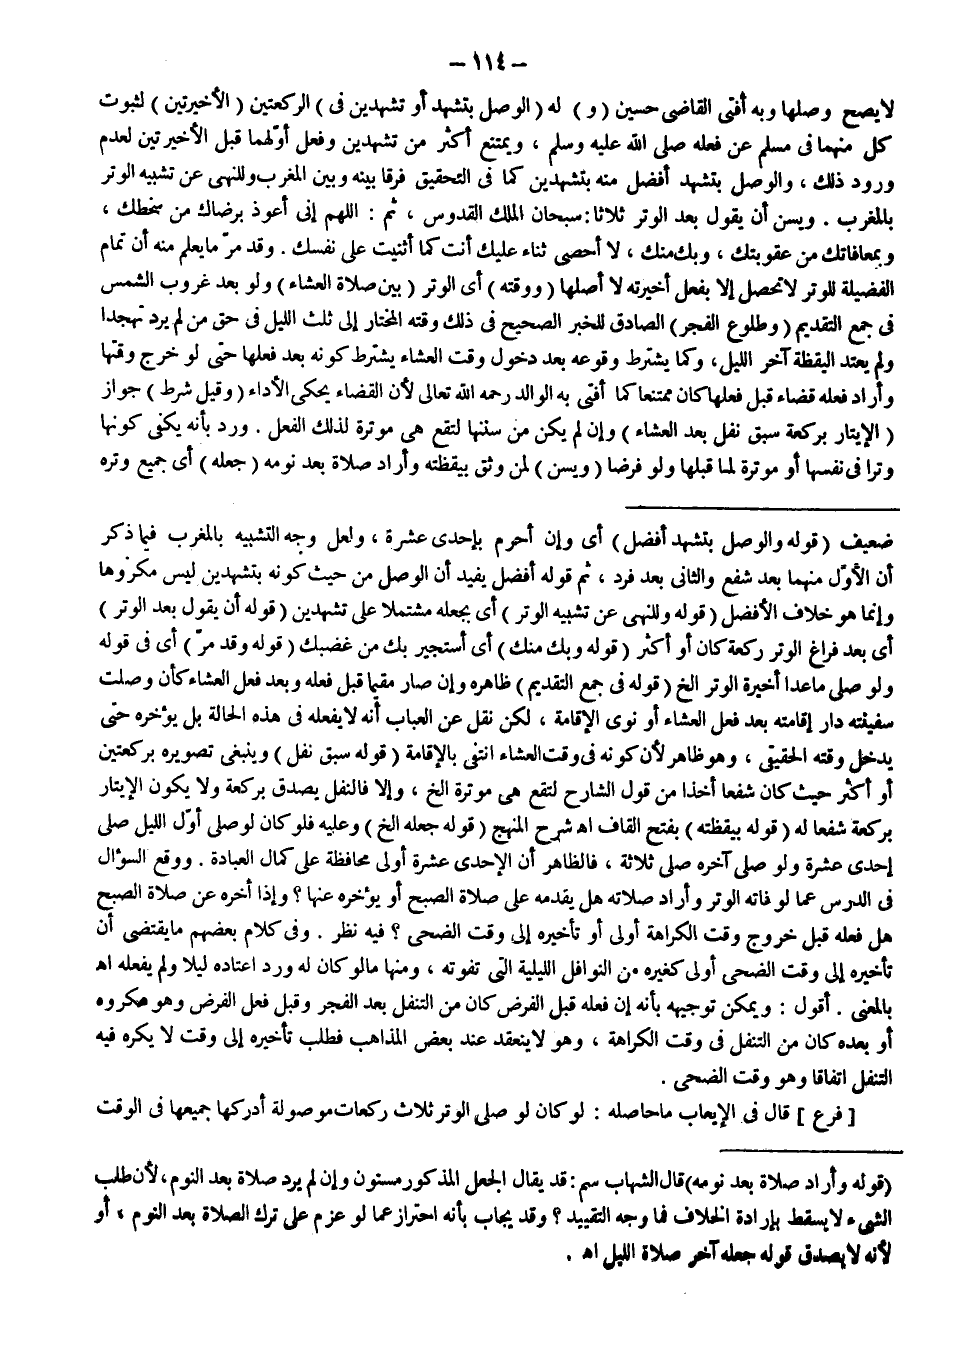 - ١١٤ -
لايصح وصلها وبه أفتى القاضى حسين ( و ) له ( الوصل بتشهد أو تشهدين فى ) الركعتين ( الأخيرتين ) لثبوت
كل منهما فى مسلم عن فعله صلى الله عليه وسلم ، ويمتنع أكثر من تشهدين وفعل أولهما قبل الأخيرتين لعدم
ورود ذلك ، والوصل بتشهد أفضل منه بتشهدين كما فى التحقيق فرقا بينه وبين المغرب وللنهى عن تشبيه الوتر
بالمغرب . ويسن أن يقول بعد الوتر ثلاثا : سبحان الملك القدوس ، ثم : اللهم إنى أعوذ برضاك من سخطك ،
وبمعافاتك من عقوبتك ، وبك منك ، لا أحصى ثناء عليك أنت كما أثنيت على نفسك . وقد مرّ مايعلم منه أن تمام
الفضيلة للوتر لاتحصل إلا بفعل أخيرته لا أصلها ( ووقته ) أى الوتر ( بين صلاة العشاء ) ولو بعد غروب الشمس
فى جمع التقديم ( وطلوع الفجر ) الصادق للخبر الصحيح فى ذلك وقته المختار إلى ثلث الليل فى حق من لم يرد تهجدا
ولم يعتد اليقظة آخر الليل، وكما يشترط وقوعه بعد دخول وقت العشاء يشترط كونه بعد فعلها حتى لو خرج وقتها
وأراد فعله قضاء قبل فعلها كان ممتنعا كما أفتى به الوالد رحمه الله تعالى لأن القضاء يحكى الأداء ( وقيل شرط ) جواز
( الإيتار بركعة سبق نفل بعد العشاء ) وإن لم يكن من سننها لتقع هى موترة لذلك الفعل . ورد بأنه يكفى كونها
وترا فى نفسها أو موترة لما قبلها ولو فرضا ( ويسن ) لمن وثق بيقظته وأراد صلاة بعد نومه ( جعله ) أى جميع وتره
ضعيف ( قوله والوصل بتشهد أفضل ) أى وإن أحرم بإحدى عشرة ، ولعل وجه التشبيه بالمغرب فيما ذكر
أن الأوّل منهما بعد شفع والثانى بعد فرد ، ثم قوله أفضل يفيد أن الوصل من حيث كونه بتشهدين ليس مكروها
وإنما هو خلاف الأفضل ( قوله وللنهى عن تشبيه الوتر ) أى بجعله مشتملا على تشهدين ( قوله أن يقول بعد الوتر )
أى بعد فراغ الوتر ركعة كان أو أكثر ( قوله وبك منك ) أى أستجير بك من غضبك ( قوله وقد مرّ ) أى فى قوله
ولو صلى ماعدا أخيرة الوتر الخ ( قوله فى جمع التقديم ) ظاهره وإن صار مقيما قبل فعله وبعد فعل العشاء كأن وصلت
سفينته دار إقامته بعد فعل العشاء أو نوى الإقامة ، لكن نقل عن العباب أنه لايفعله فى هذه الحالة بل يؤخره حتى
يدخل وقته الحقيقى ، وهو ظاهر لأن كونه فى وقت العشاء انتفى بالإقامة ( قوله سبق نفل ) وينبغى تصويره بركعتين
أو أكثر حيث كان شفعا أخذا من قول الشارح لتقع هى موترة الخ ، وإلا فالنفل يصدق بركعة ولا يكون الإيتار
بركعة شفعا له ( قوله بيقظته ) بفتح القاف اه شرح المنهج ( قوله جعله الخ ) وعليه فلو كان لوصلى أوّل الليل صلى
إحدى عشرة ولو صلى آخره صلى ثلاثة ، فالظاهر أن الإحدى عشرة أولى محافظة على كمال العبادة . ووقع السؤال
فى الدرس عما لو فاته الوتر وأراد صلاته هل يقدمه على صلاة الصبح أو يؤخره عنها ؟ وإذا أخره عن صلاة الصبح
هل فعله قبل خروج وقت الكراهة أولى أو تأخيره إلى وقت الضحى ؟ فيه نظر . وفى كلام بعضهم مايقتضى أن
تأخيره إلى وقت الضحى أولى كغيره من النوافل الليلية التى تفوته ، ومنها مالو كان له ورد اعتاده ليلا ولم يفعله اه
بالمعنى . أقول : ويمكن توجيهه بأنه إن فعله قبل الفرض كان من التنفل بعد الفجر وقبل فعل الفرض وهو مكروه
أو بعده كان من التنفل فى وقت الكراهة ، وهو لاينعقد عند بعض المذاهب فطلب تأخيره إلى وقت لا يكره فيه
التنفل اتفاقا وهو وقت الضحى .
[ فرع ] قال فى الإيعاب ماحاصله : لو كان لو صلى الوتر ثلاث ركعات موصولة أدركها جميعها فى الوقت
(قوله وأراد صلاة بعد نومه) قال الشهاب سم : قد يقال الجعل المذكور مسنون وإن لم يرد صلاة بعد النوم، لأن طلب
الشىء لايسقط بإرادة الخلاف فما وجه التقييد ؟ وقد يجاب بأنه احتراز عما لو عزم على ترك الصلاة بعد النوم ، أو
لأنه لايصدق قوله جعله آخر صلاة الليل اه .